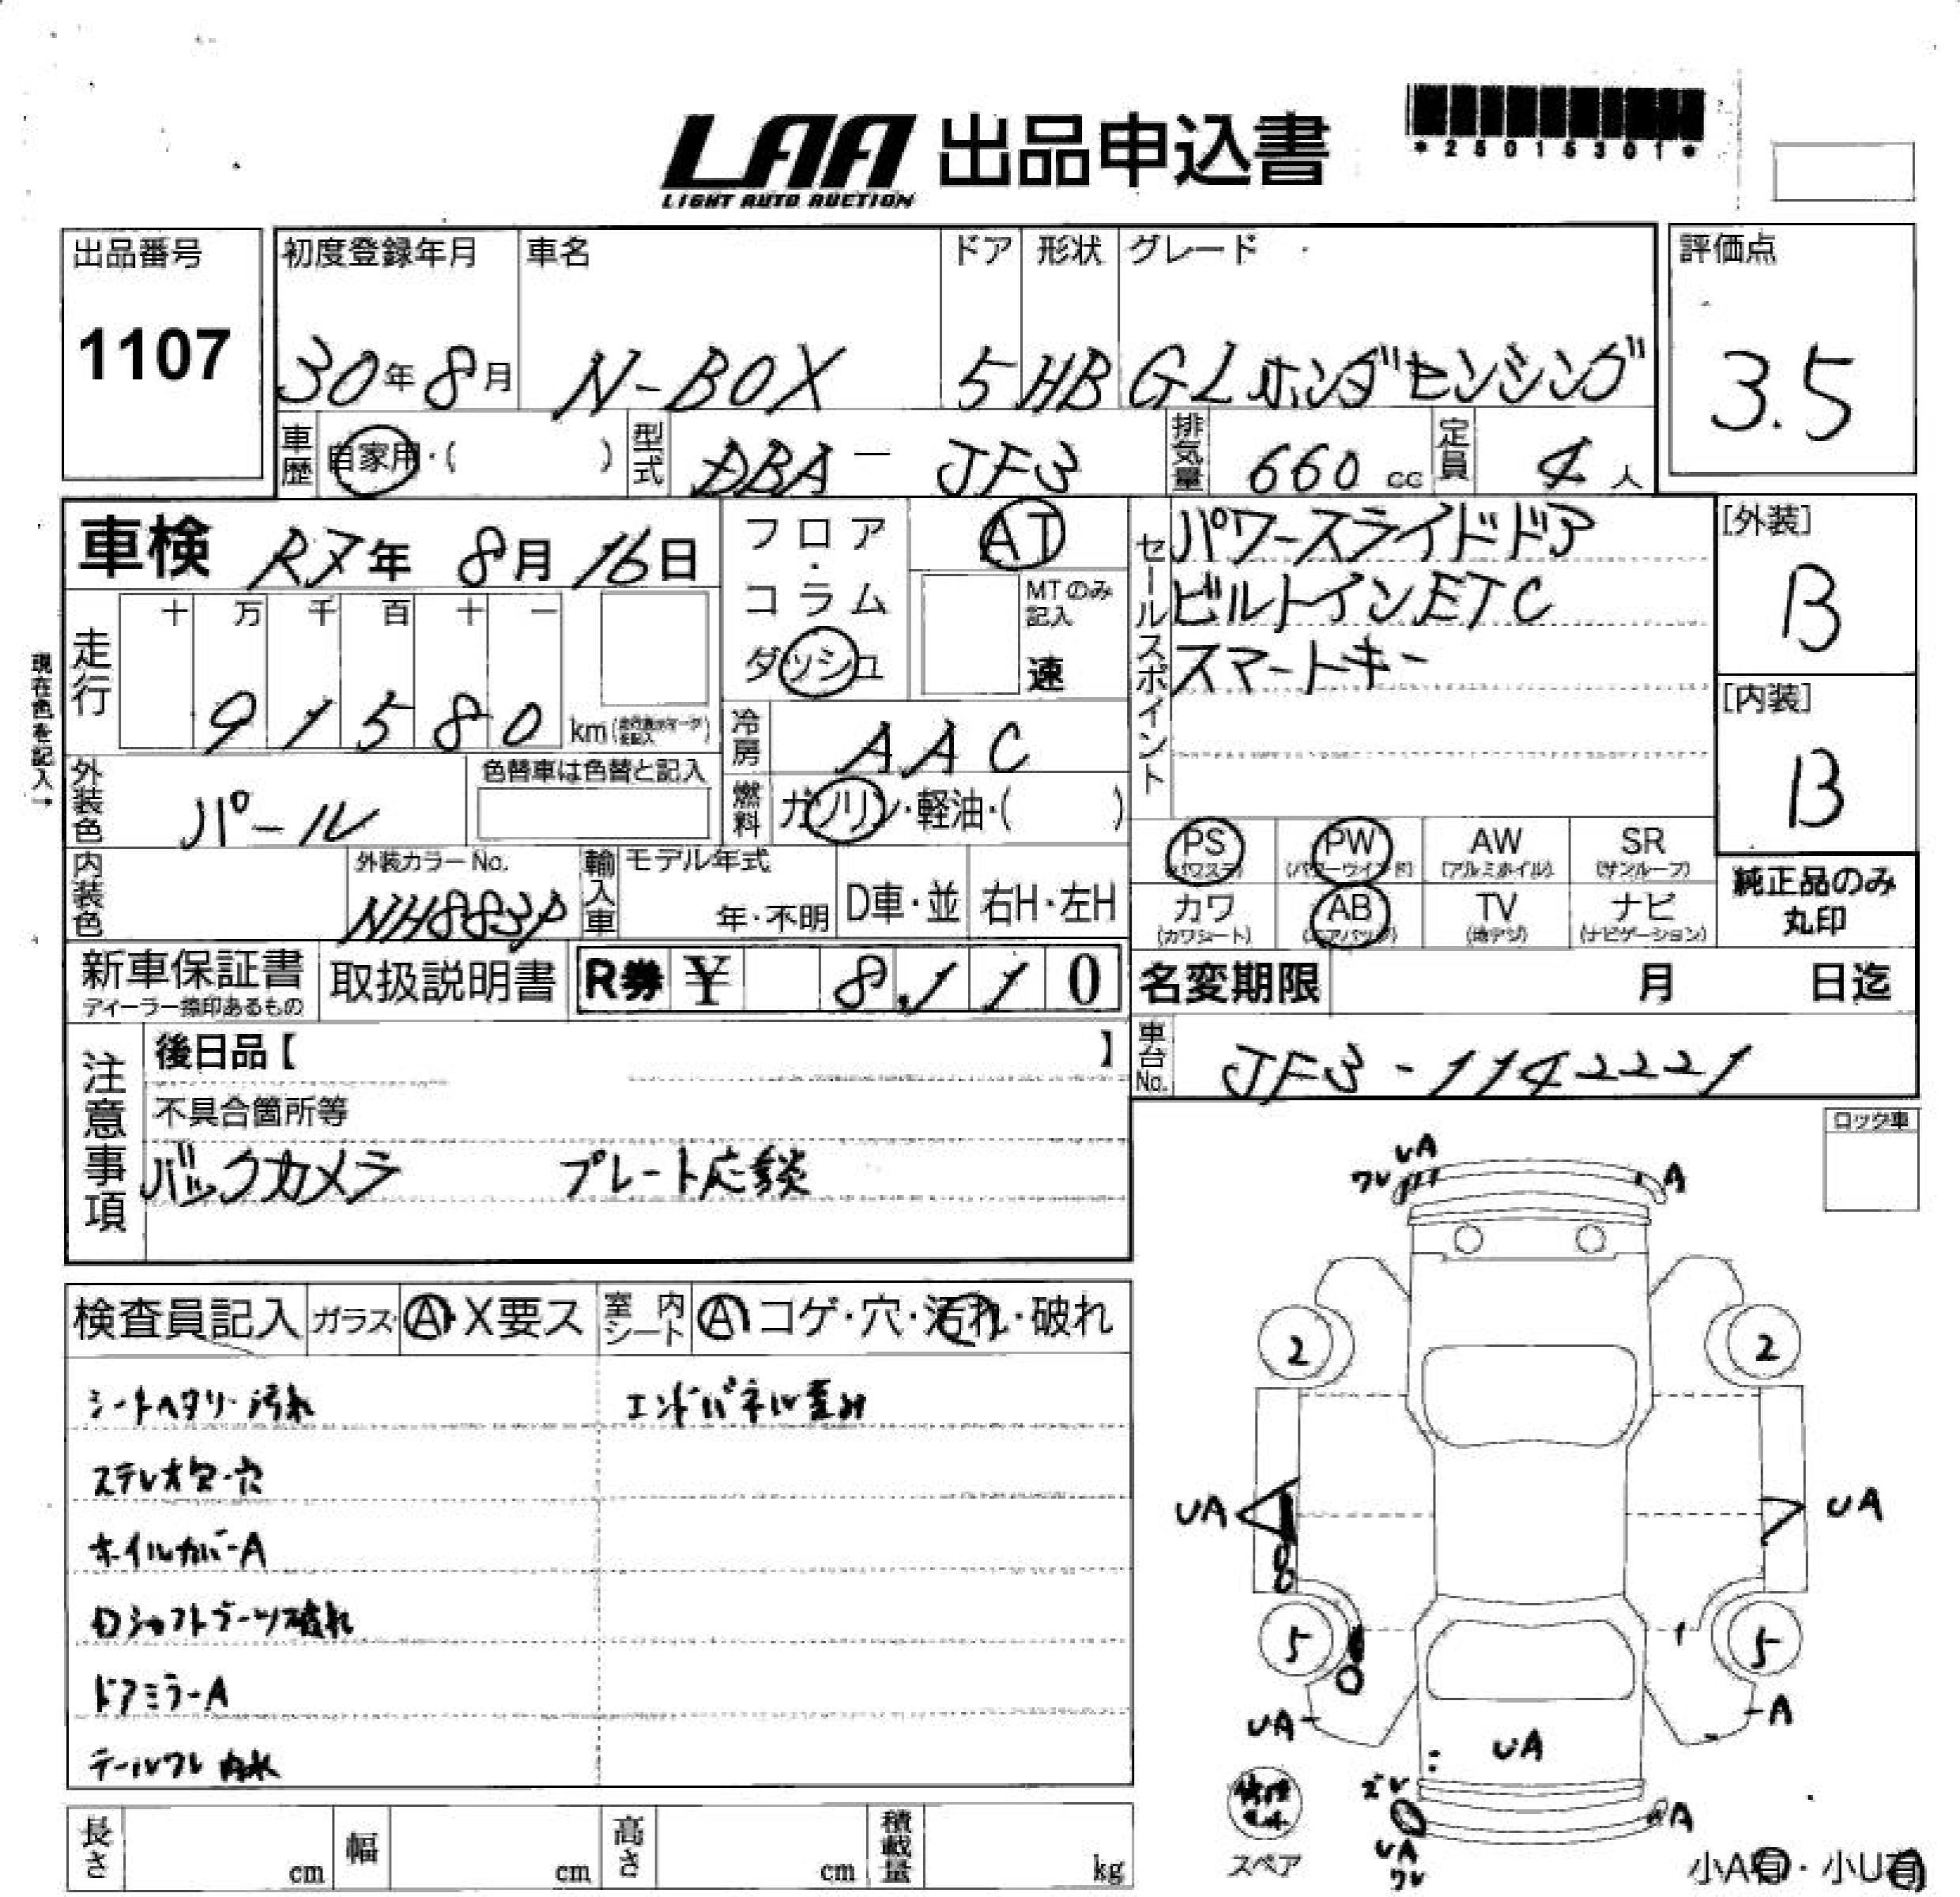 LAA 出品申込書
LIGHT AUTO AUCTION
*25015301*
出品番号
1107
初度登録年月
30年8月
車名
N-BOX
ドア
5
形状
HB
グレード
GLホンダセンシング
評価点
3.5
車歴 自家用・( )
型式 DBA-JF3
排気量 660 cc
定員 4人
車検 R7年 8月 16日
現在色を記入→
走行
十 万 千 百 十 一
9 1 5 8 0 km
フロア・コラム
ダッシュ
AT
MTのみ記入
速
冷房 AAC
燃料 ガソリン・軽油・( )
セールスポイント
パワースライドドア
ビルトインETC
スマートキー
[外装]
B
[内装]
B
外装色 パール
色替車は色替と記入
内装色
外装カラーNo.
NH883P
輸入車
モデル年式
年・不明
D車・並
右H・左H
PS (パワステ)
PW (パワーウインド)
AW (アルミホイル)
SR (サンルーフ)
カワ (カワシート)
AB (エアバッグ)
TV (地デジ)
ナビ (ナビゲーション)
純正品のみ
丸印
新車保証書
ディーラー捺印あるもの
取扱説明書
R券 ¥ 8,110
名変期限 月 日迄
車台No. JF3-1142221
注意事項
後日品【 】
不具合箇所等
バックカメラ プレート応談
ロック車
検査員記入
ガラス A・X要ス
室内シート A コゲ・穴・汚れ・破れ
シートヘタリ・汚れ
エンドパネル歪み
ステレオ欠・穴
ホイルカバーA
Dシャフトブーツ破れ
ドアミラーA
テールワレ 内水
UA
ワレ
A
2
2
UA
UA
5
5
UA
A
UA
ズレ
A
UA
ワレ
スペア
小A有・小U有
長さ cm
幅 cm
高さ cm
積載量 kg